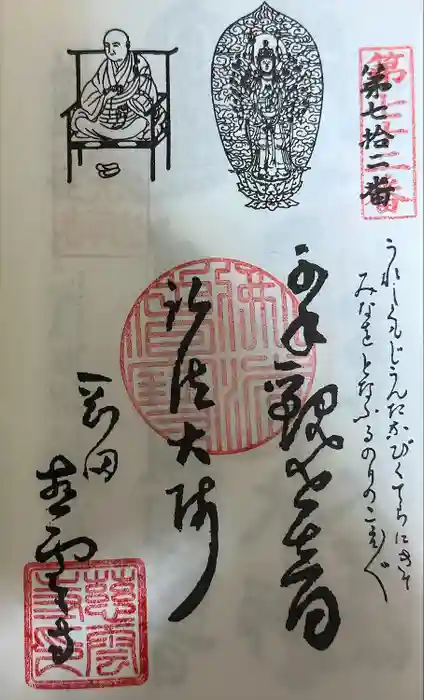 第七拾二番
うれしくもじうんたなびくてらにきて
みなをとなふるのりのこゑ
千手観世音
弘法大師
岡田
慈雲寺